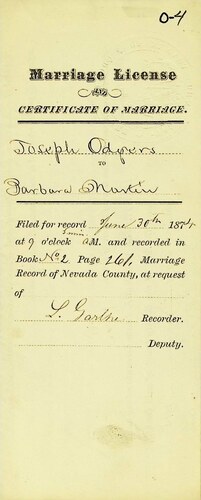 O-4
Marriage License
AND
CERTIFICATE OF MARRIAGE.
Joseph Odgers
TO
Barbara Martin
Filed for record June 30th 1874
at 9 o'clock A.M. and recorded in
Book No 2 Page 261, Marriage
Record of Nevada County, at request
of
L. Garthe Recorder.
Deputy.